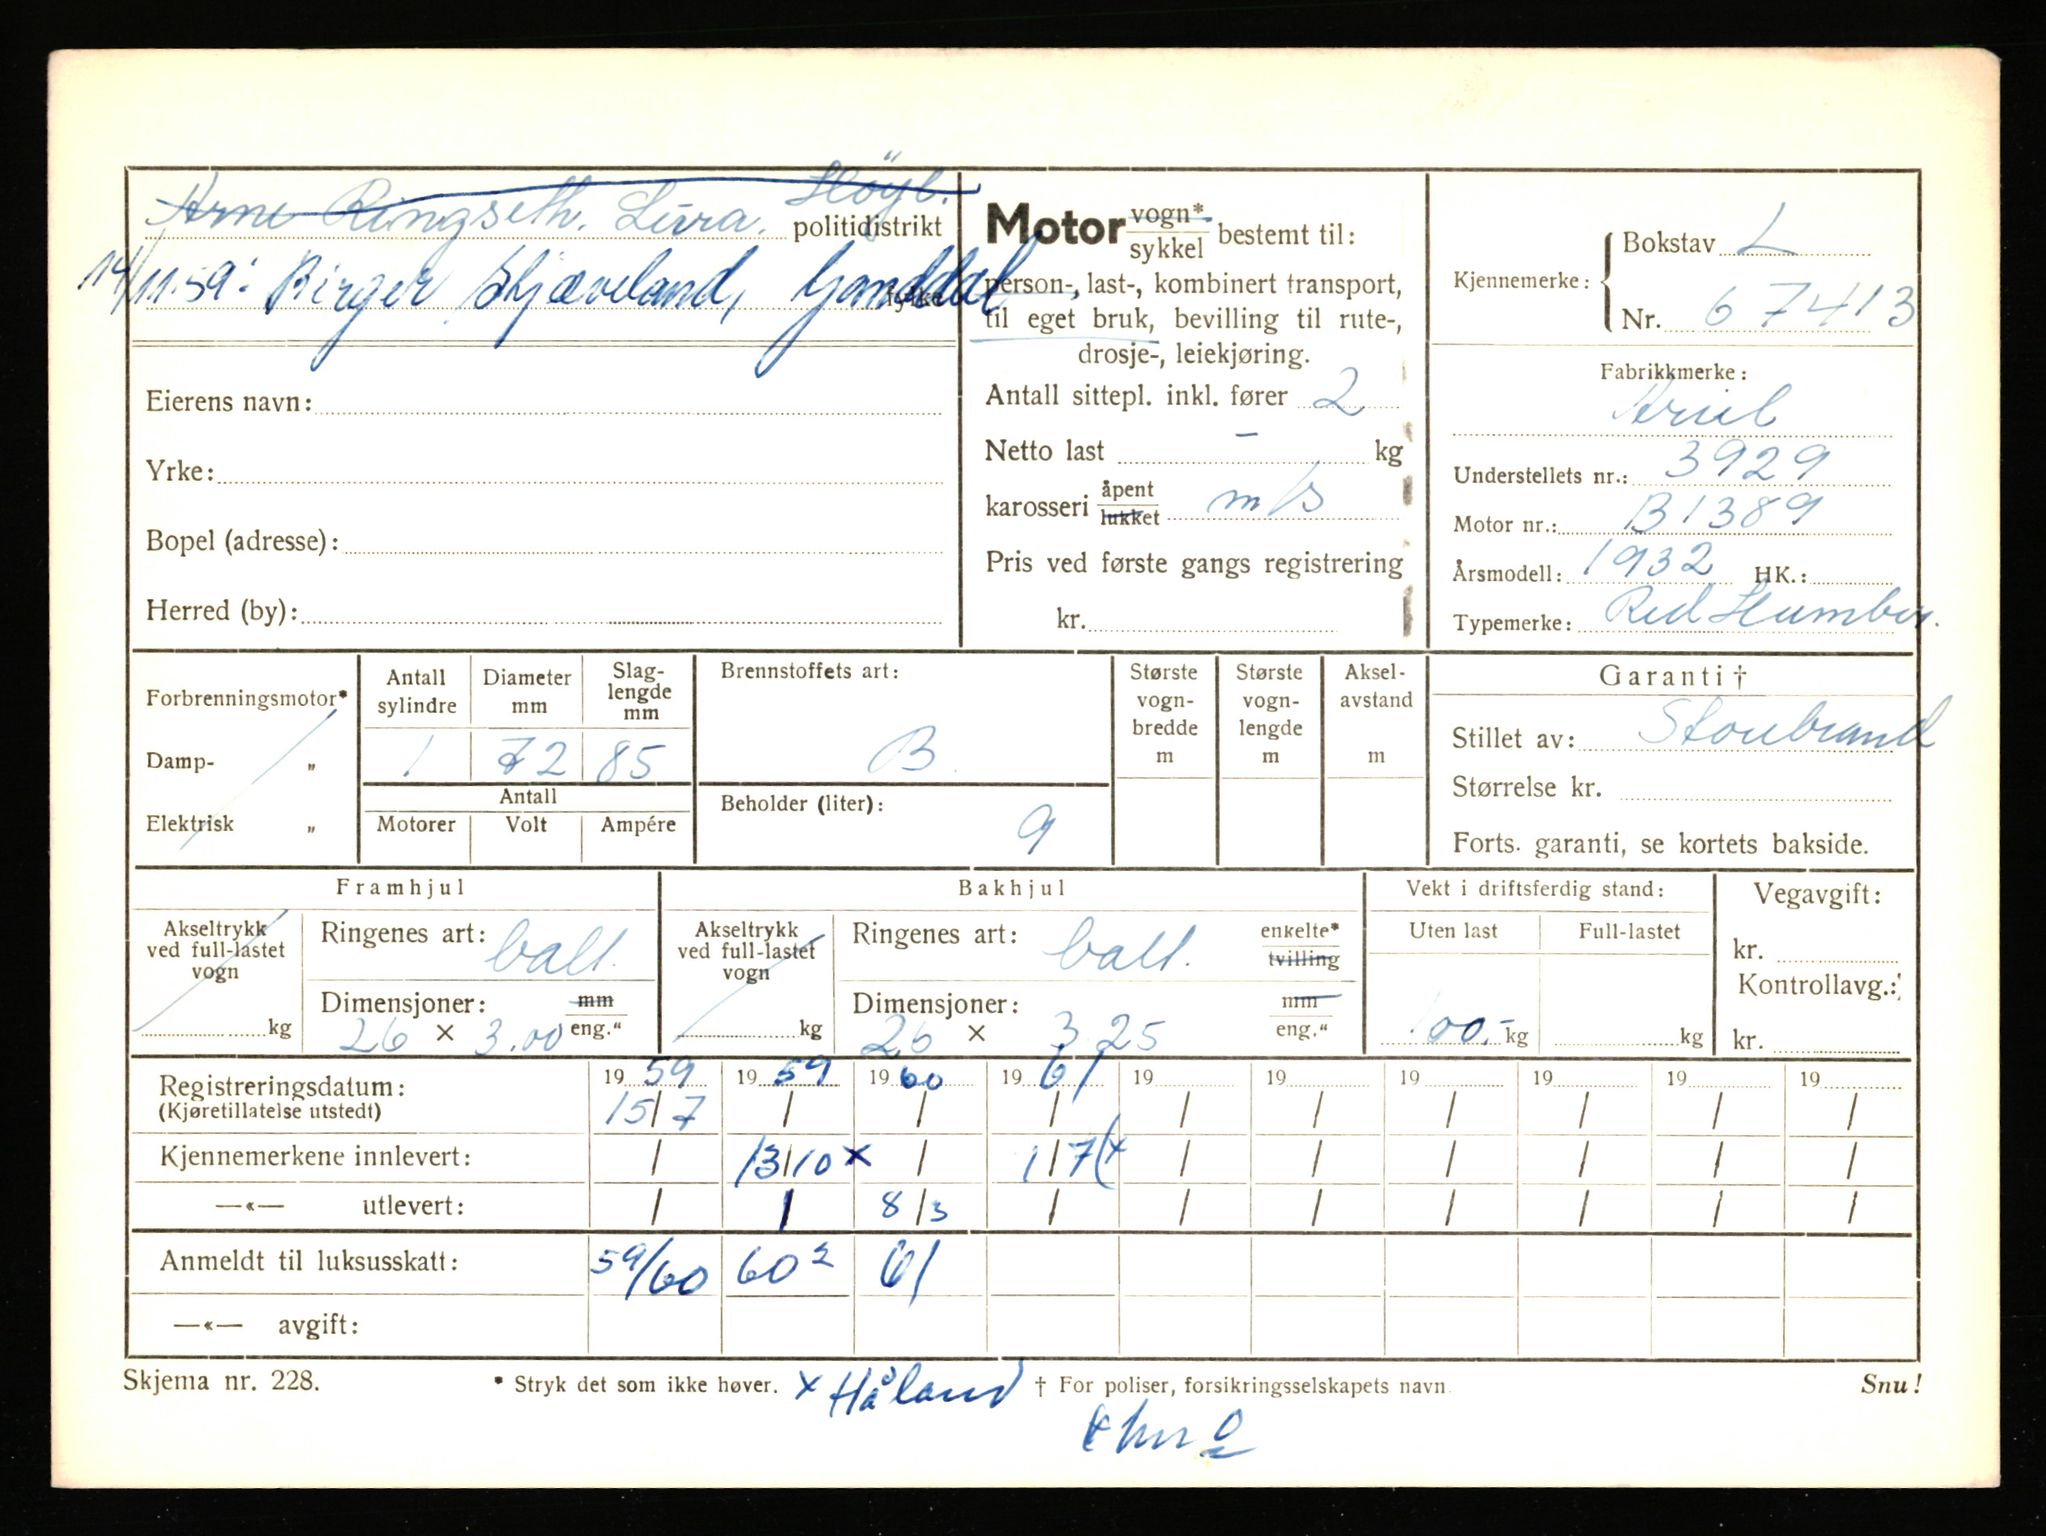 Arne Ringseth. Lura. Høyl. politidistrikt
14/11.59: Birger Skjæveland, Ganddal fylke
Eierens navn:
Yrke:
Bopel (adresse):
Herred (by):
Motor vogn* sykkel bestemt til:
person-, last-, kombinert transport,
til eget bruk, bevilling til rute-,
drosje-, leiekjøring.
Antall sittepl. inkl. fører 2
Netto last - kg
karosseri åpent lukket m/s
Pris ved første gangs registrering
kr.
Kjennemerke: Bokstav L
Nr. 67413
Fabrikkmerke:
Ariel
Understellets nr.: 3929
Motor nr.: B1389
Årsmodell: 1932 HK.:
Typemerke: Red Hunter.
Forbrenningsmotor*
Damp- „
Elektrisk „
Antall sylindre 1
Diameter mm 72
Slag-lengde mm 85
Antall
Motorer Volt Ampére
Brennstoffets art:
B
Beholder (liter):
9
Største vogn-bredde m
Største vogn-lengde m
Aksel-avstand m
Garanti †
Stillet av: Storebrand
Størrelse kr.
Forts. garanti, se kortets bakside.
Framhjul
Akseltrykk ved full-lastet vogn kg
Ringenes art: ball.
Dimensjoner: mm eng."
26 × 3.00
Bakhjul
Akseltrykk ved full-lastet vogn kg
Ringenes art: ball. enkelte* tvilling
Dimensjoner: mm eng."
26 × 3.25
Vekt i driftsferdig stand:
Uten last Full-lastet
100.- kg kg
Vegavgift:
kr.
Kontrollavg.:
kr.
Registreringsdatum: 19 59 19 59 19 60 19 61 19 19 19 19 19 19
(Kjøretillatelse utstedt) 15/7 / / / / / / / / /
Kjennemerkene innlevert: / 13/10 x / 1/7 (x / / / / / /
—«— utlevert: / / 8/3 / / / / / / /
Anmeldt til luksusskatt: 59/60 60 2 61
—«— avgift:
Skjema nr. 228. * Stryk det som ikke høver. x Håland † For poliser, forsikringsselskapets navn. Snu!